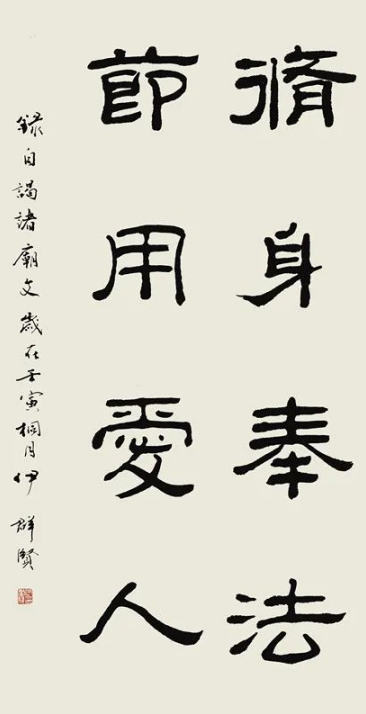 脩身奉法
節用愛人
録自謁諸廟文歲在壬寅桐月伊群賢